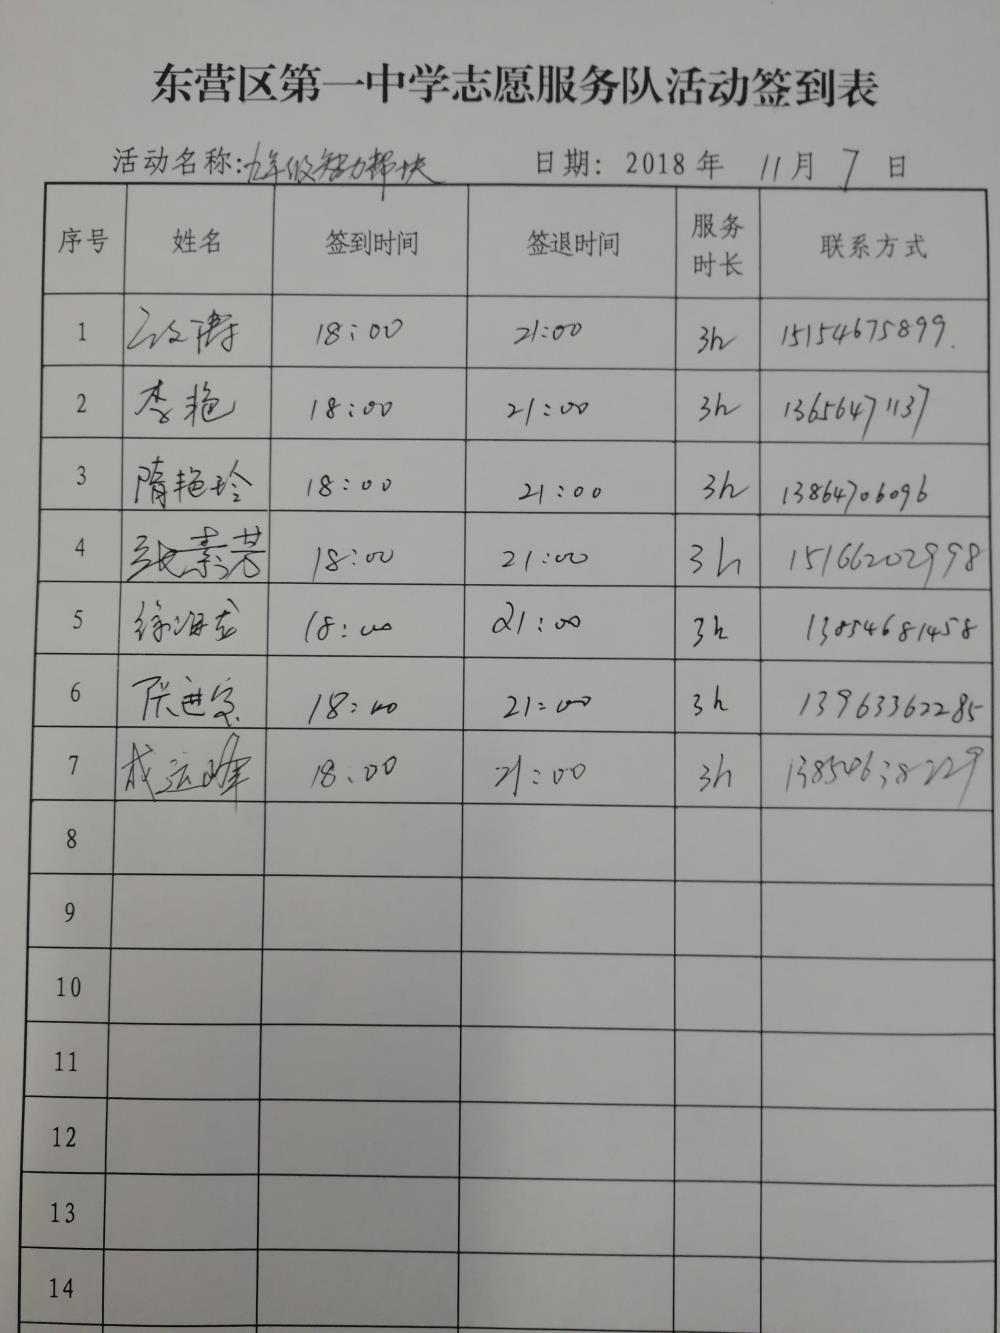 东营区第一中学志愿服务队活动签到表
活动名称:九年级智力帮扶 日期: 2018 年 11 月 7 日
序号 姓名 签到时间 签退时间 服务时长 联系方式
1 18:00 21:00 3h 15154675899.
2 李艳 18:00 21:00 3h 13656471137
3 隋艳玲 18:00 21:00 3h 13864706096
4 张素芳 18:00 21:00 3h 15166202998
5 徐海龙 18:00 21:00 3h 13854681458
6 张进军 18:00 21:00 3h 13963362285
7 成运峰 18:00 21:00 3h
8
9
10
11
12
13
14